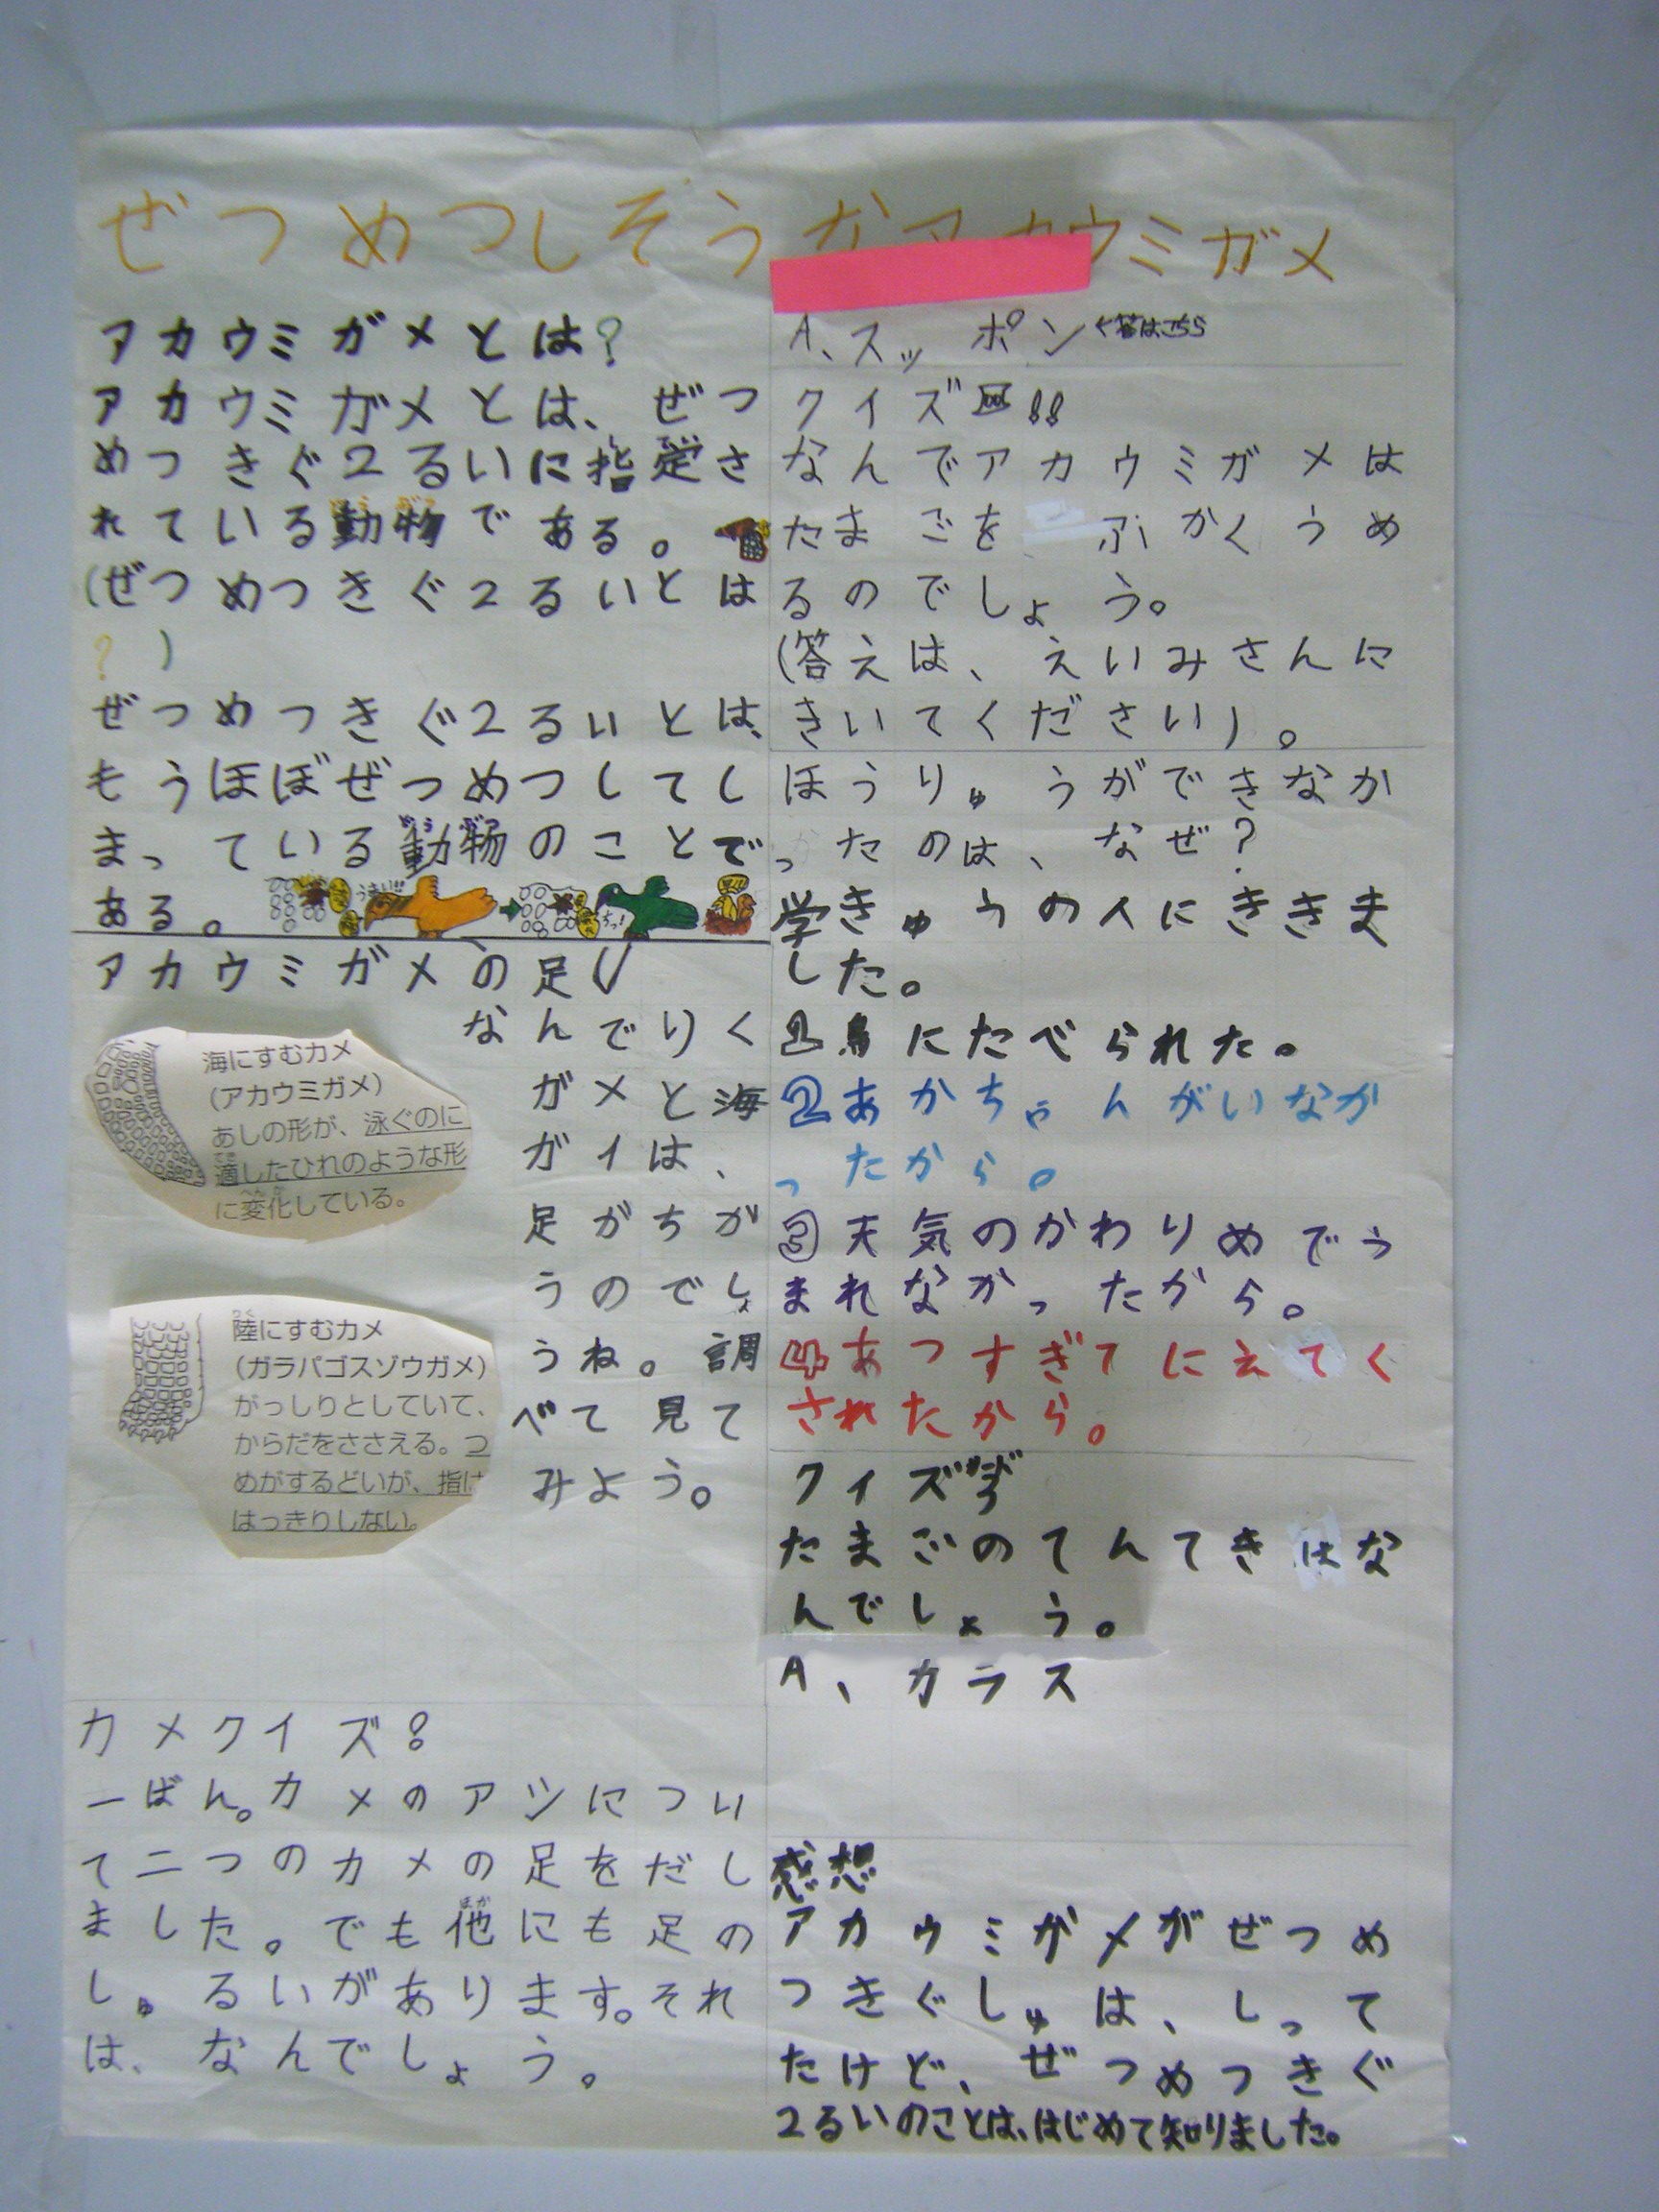 ぜつめつしそうなアカウミガメ
アカウミガメとは?
アカウミガメとは、ぜつ
めつきぐ2るいに指定さ
れている動物である。
(ぜつめつきぐ2るいとは
?)
ぜつめつきぐ2るいとは、
もうほぼぜつめつしてし
まっている動物のことで
ある。
うまい!!
アカウミガメの足
なんでりく
ガメと海
ガイは、
足がちが
うのでしょ
うね。調
べて見て
みよう。
海にすむカメ
(アカウミガメ)
あしの形が、泳ぐのに
適したひれのような形
に変化している。
陸にすむカメ
(ガラパゴスゾウガメ)
がっしりとしていて、
からだをささえる。つ
めがするどいが、指は
はっきりしない。
カメクイズ?
一ばん。カメのアシについ
て二つのカメの足をだし
ました。でも他にも足の
しゅるいがあります。それ
は、なんでしょう。
A、スッポン<答はこちら
クイズ!!
なんでアカウミガメは
たまごを ふかくうめ
るのでしょう。
(答えは、えいみさんに
きいてください)。
ほうりゅうができなか
ったのは、なぜ?
学きゅうの人にききま
した。
1鳥にたべられた。
2あかちゃんがいなか
ったから。
③天気のかわりめでう
まれなかったから。
4あつすぎてにえてく
されたから。
クイズ
たまごのてんてきはな
んでしょう。
A、カラス
感想
アカウミガメがぜつめ
つきぐしゅは、しって
たけど、ぜつめつきぐ
2るいのことは、はじめて知りました。